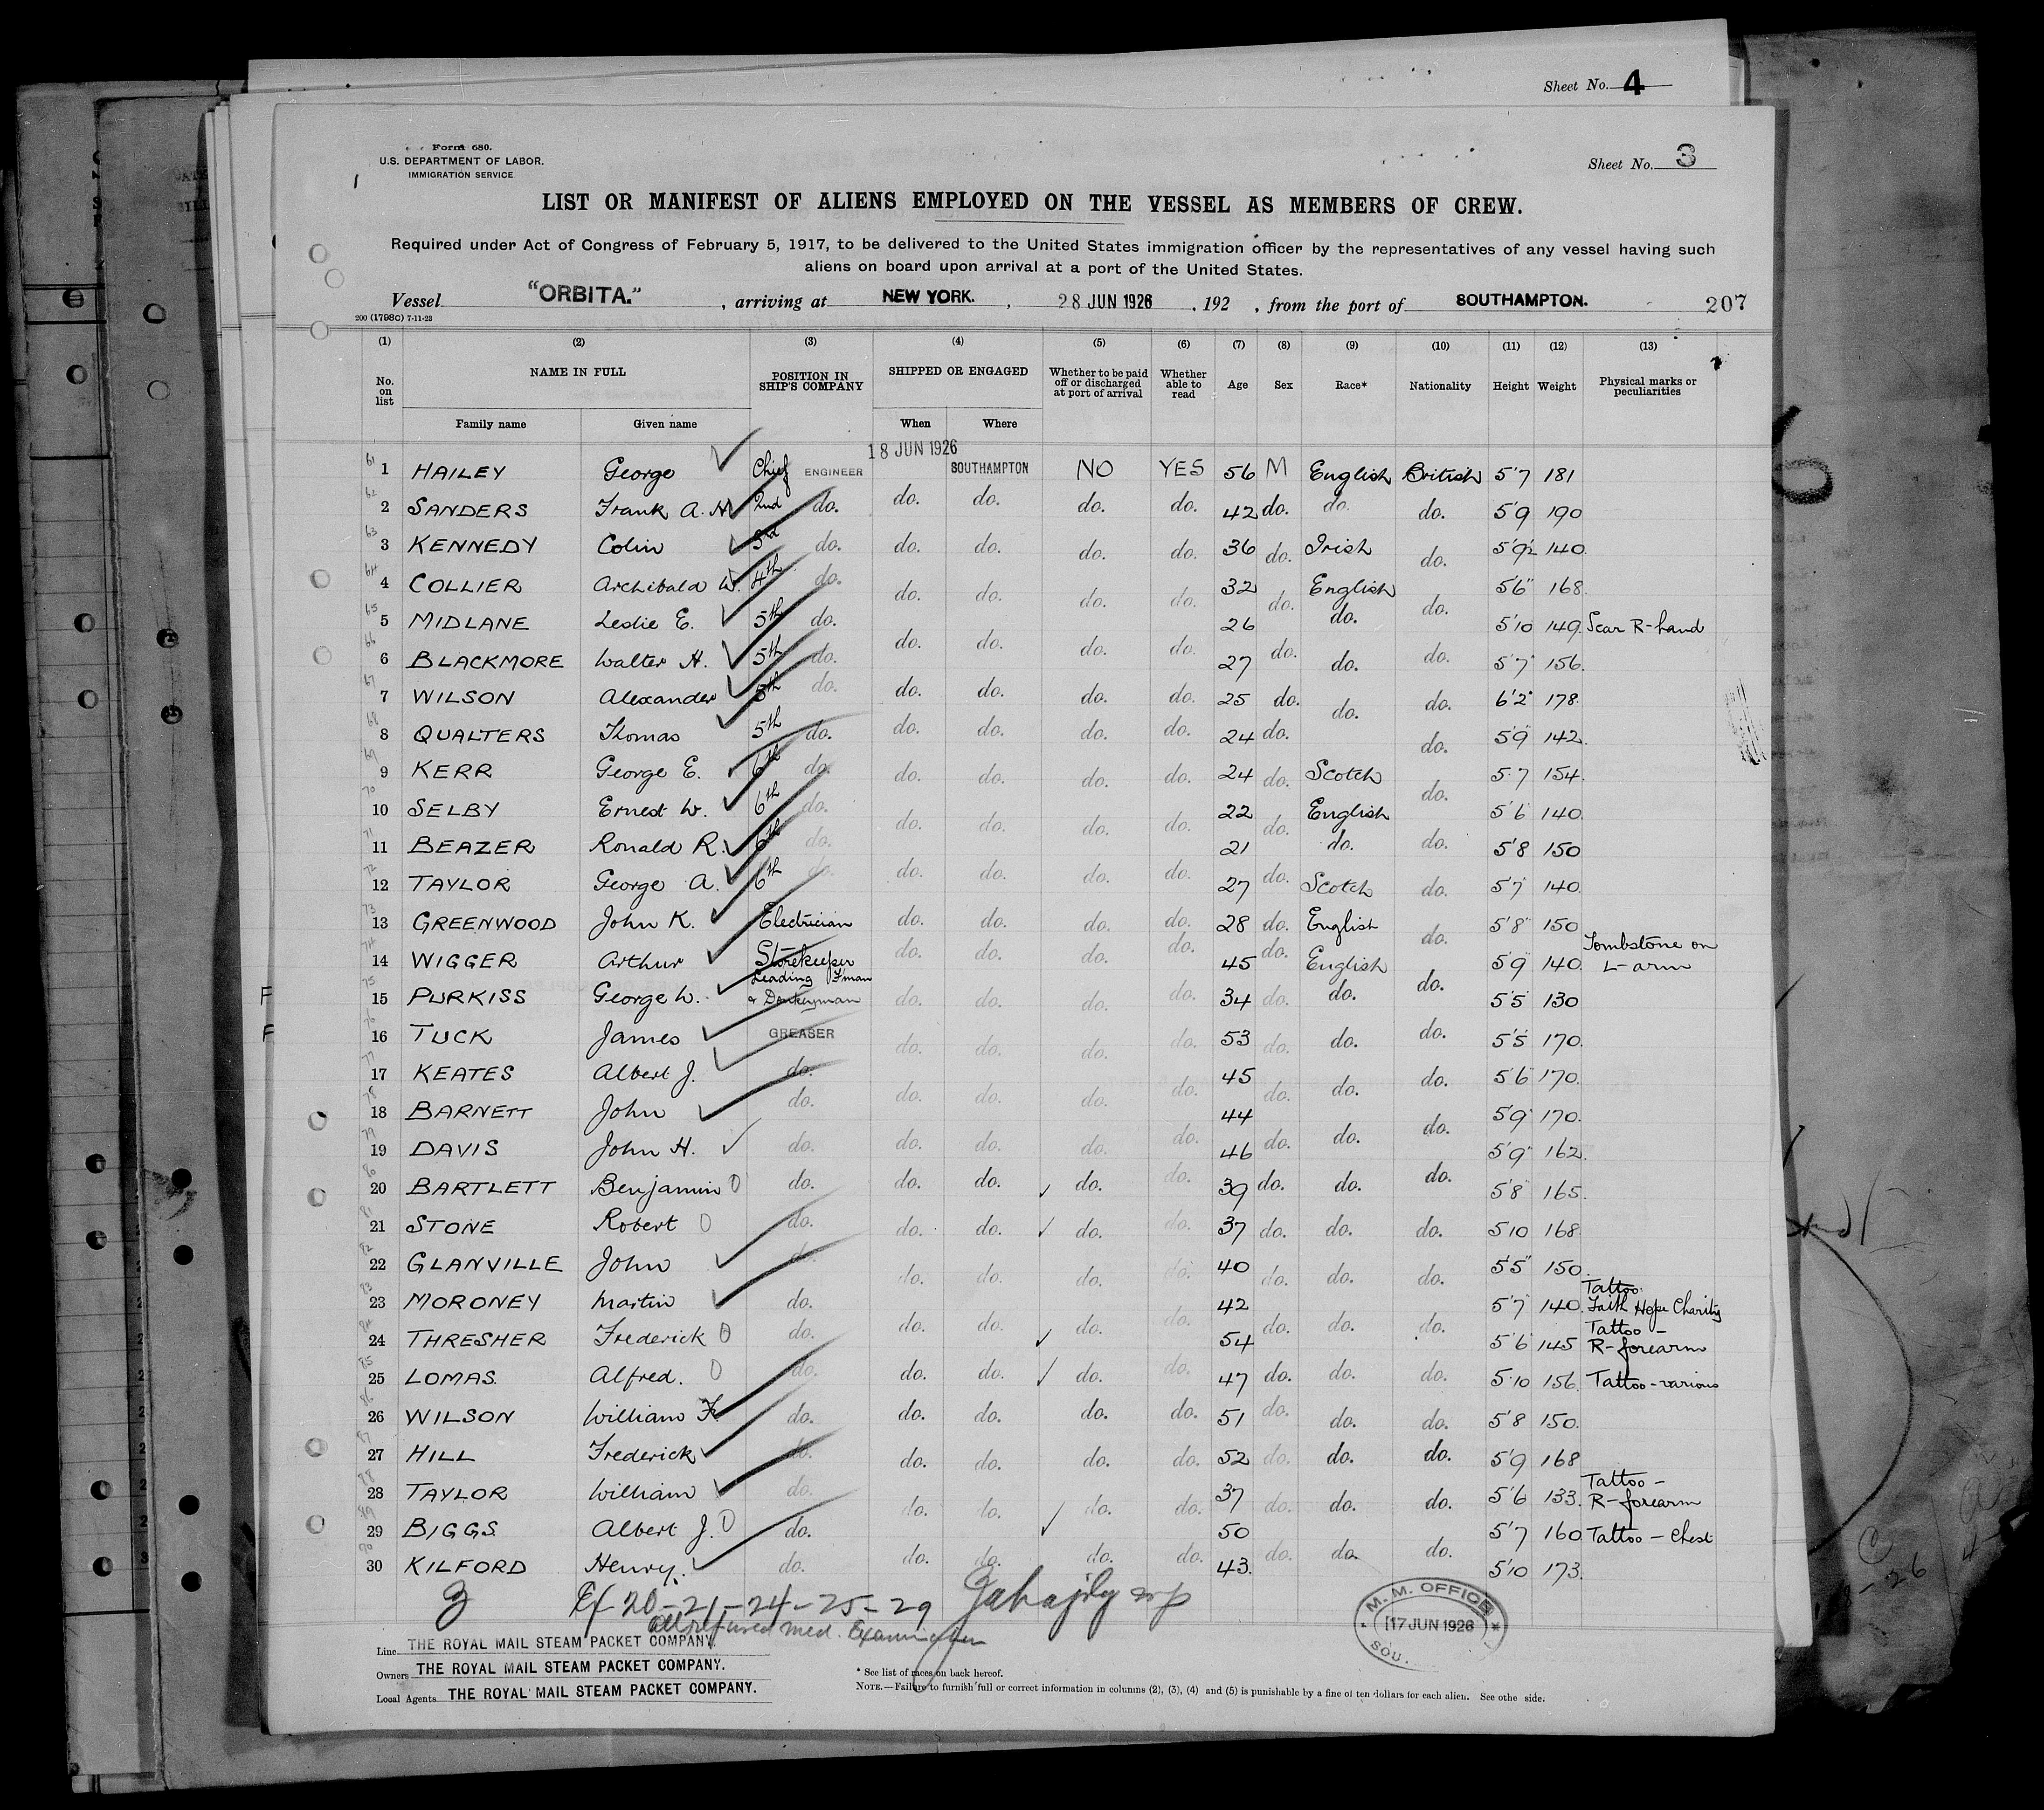 Sheet No. 4
Form 680.
U.S. DEPARTMENT OF LABOR.
IMMIGRATION SERVICE
Sheet No. 3
LIST OR MANIFEST OF ALIENS EMPLOYED ON THE VESSEL AS MEMBERS OF CREW.
Required under Act of Congress of February 5, 1917, to be delivered to the United States immigration officer by the representatives of any vessel having such
aliens on board upon arrival at a port of the United States.
Vessel "ORBITA." , arriving at NEW YORK. , 28 JUN 1926 , 192 , from the port of SOUTHAMPTON. 207
200 (1798C) 7-11-23
(1) (2) (3) (4) (5) (6) (7) (8) (9) (10) (11) (12) (13)
No. on list NAME IN FULL POSITION IN SHIP'S COMPANY SHIPPED OR ENGAGED Whether to be paid off or discharged at port of arrival Whether able to read Age Sex Race* Nationality Height Weight Physical marks or peculiarities
Family name Given name When Where
18 JUN 1926
61 1 HAILEY George Chief ENGINEER SOUTHAMPTON NO YES 56 M English British 5'7 181
62 2 SANDERS Frank A. H 2nd do. do. do. do. do. 42 do. do. do. 5'9 190
63 3 KENNEDY Colin 3rd do. do. do. do. do. 36 do. Irish do. 5'9½ 140
64 4 COLLIER Archibald W. 4th do. do. do. do. do. 32 do. English do. 5'6" 168
65 5 MIDLANE Leslie E. 5th do. do. do. do. do. 26 do. do. do. 5'10 149 Scar R-hand
66 6 BLACKMORE Walter H. 5th do. 27 do. do. 5'7" 156
67 7 WILSON Alexander 5th do. do. do. do. do. 25 do. do. do. 6'2" 178
68 8 QUALTERS Thomas 5th do. do. do. do. do. 24 do. do. 5'9 142
69 9 KERR George E. 6th do. do. do. do. do. 24 do. Scotch do. 5'7 154
70 10 SELBY Ernest W. 6th do. do. do. do. do. 22 do. English 5'6 140
71 11 BEAZER Ronald R. 6th do. 21 do. do. 5'8 150
72 12 TAYLOR George A. 6th do. do. do. do. do. 27 do. Scotch do. 5'7" 140
73 13 GREENWOOD John K. Electrician do. do. do. do. 28 do. English do. 5'8" 150
74 14 WIGGER Arthur Storekeeper do. do. do. do. 45 do. English do. 5'9 140 Tombstone on L-arm
F 75 15 PURKISS George W. Leading F'man & Donkeyman do. do. do. do. 34 do. do. 5'5" 130
F 76 16 TUCK James GREASER do. do. do. do. 53 do. do. do. 5'5" 170
77 17 KEATES Albert J. do. 45 do. do. 5'6 170
78 18 BARNETT John do. do. do. do. do. 44 do. do. 5'9" 170
79 19 DAVIS John H. do. do. do. do. do. 46 do. do. do. 5'9" 162
80 20 BARTLETT Benjamin do. do. do. do. do. 39 do. do. do. 5'8" 165
81 21 STONE Robert do. do. do. do. do. 37 do. do. do. 5'10 168
82 22 GLANVILLE John do. do. do. do. do. 40 do. do. do. 5'5" 150
83 23 MORONEY Martin do. 42 5'7" 140 Tattoo Faith Hope Charity
84 24 THRESHER Frederick do. do. do. do. do. 54 do. do. do. 5'6" 145 Tattoo - R-forearm
85 25 LOMAS Alfred. do. do. do. do. do. 47 do. do. do. 5'10 156 Tattoo-various
86 26 WILSON William F. do. do. do. do. do. 51 do. do. do. 5'8 150
87 27 HILL Frederick do. do. do. do. do. 52 do. do. do. 5'9 168
88 28 TAYLOR William do. do. do. do. do. 37 do. do. do. 5'6 133 Tattoo - R-forearm
89 29 BIGGS Albert J. do. 50 5'7 160 Tattoo - Chest
90 30 KILFORD Henry. do. do. do. do. do. 43 do. do. do. 5'10 173
20-21-24-25-29
All refused med. Examination
M.M. OFFICE
17 JUN 1926
SOU.
Line THE ROYAL MAIL STEAM PACKET COMPANY.
Owners THE ROYAL MAIL STEAM PACKET COMPANY.
Local Agents THE ROYAL MAIL STEAM PACKET COMPANY.
* See list of races on back hereof.
NOTE.—Failure to furnish full or correct information in columns (2), (3), (4) and (5) is punishable by a fine of ten dollars for each alien. See othe side.